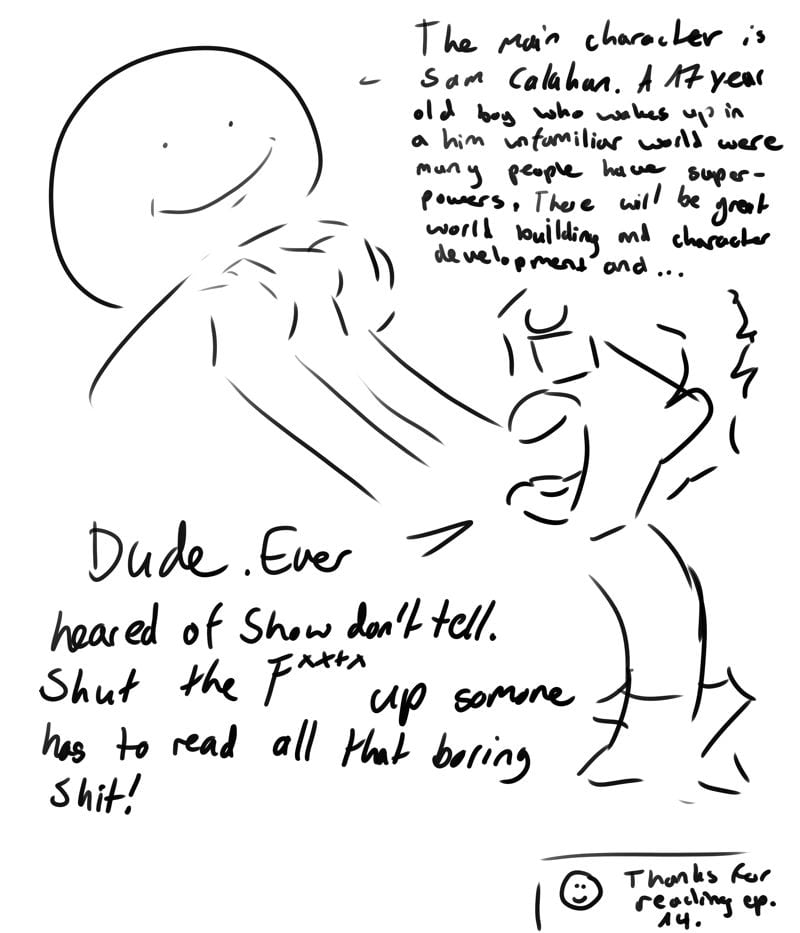 The main character is
Sam Calahan. A 17 year
old boy who wakes up in
a him unfamiliar world were
many people have super-
powers. There will be great
world building and character
development and...
Dude. Ever
heared of Show don't tell.
Shut the F**** up somone
has to read all that boring
shit!
Thanks for
reading ep.
14.